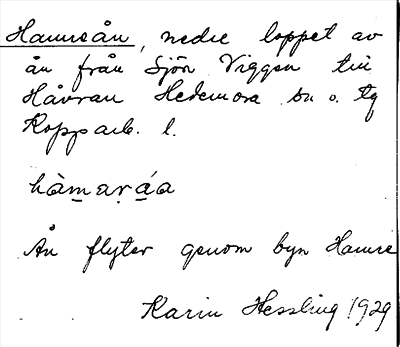 Hamreån, nedre loppet av
ån från Sjön Viggen till
Håvran Hedemora sn o. tg
Kopparb. l.
hàmaṛáa
Ån flyter genom byn Hamre
Karin Hessling 1929